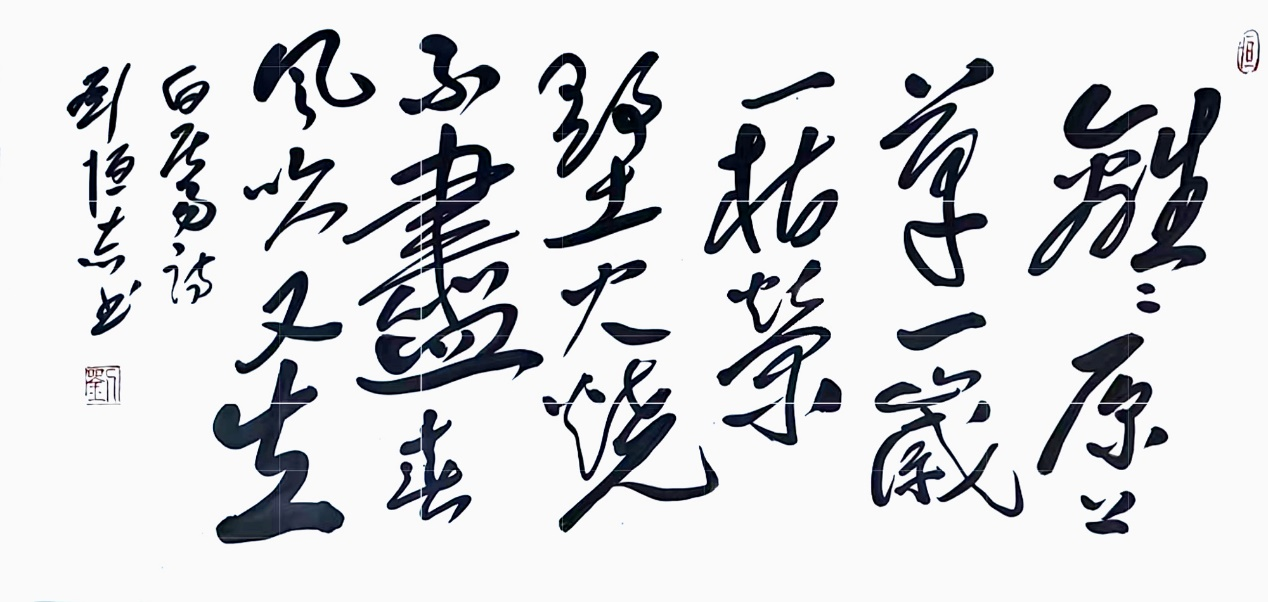 恒
離〻原上
草一歲
一枯榮
野火燒
不盡春
風吹又生
白居易詩
劉恒志书
劉